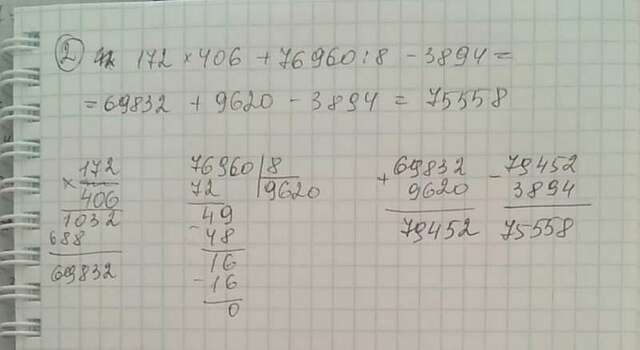 2 172 × 406 + 76960 : 8 - 3894 =
= 69832 + 9620 - 3894 = 75558
× 172
406
1032
688
69832
76960 8
72 9620
- 49
48
16
- 16
0
+ 69832
9620
79452
- 79452
3894
75558